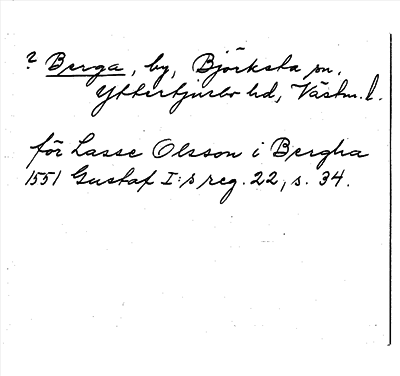 ? Berga, by, Björksta sn.
Yttertjurbo hd, Västm. l.
för Lasse Olsson i Bergha
1551 Gustaf I:s reg. 22, s. 34.